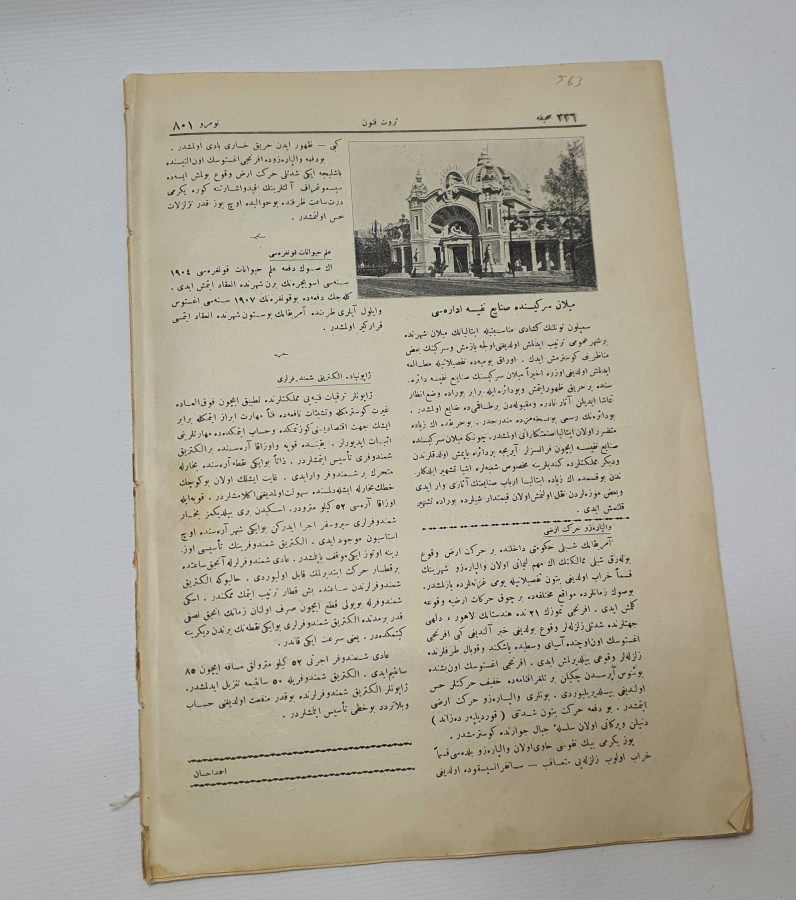 563
صحیفه ٣٣٦
ثروت فنون
نومرو ٨٠١
میلان سرکیسنده صنایع نفیسه اداره‌سی
سمپلون تونلنك کشادی مناسبتیله ایتالیانك میلان شهرنده
بر شهر عمومی ترتیب ایدلمش اولدیغنی اولجه یازمش و سرکینك بعض
مناظرینی کوسترمش ایدك . اوراق یومیه‌ده تفصیلاتیله مطالعه
ایدلمش اولدیغی اوزره اخیراً میلان سرکیسنك صنایع نفیسه دائره‌
سنده بر حریق ظهور ایتمش و بودائره ایله برابر بوراده وضع انظار
تماشا ایدیلن آثار نادره و مقبوله‌دن بر طاقمی ده ضایع اولمشدر .
بودائره‌نك رسمی بو نسخه‌مزده مندرجدر . بو حریقده اك زیاده
متضرر اولان ایتالیا صنعتکارانی اولمشدر . چونکه میلان سرکیسنده
صنایع نفیسه ایچون فرانسزلر آیریجه بر دائره یاپمش اولدقلرندن
ودیکر مملکتلرده کندیلرینه مخصوص شعبه‌لره اشیا تشهیر ایلدکلر-
ندن بو قسمده اك زیاده ایتالیا ارباب صنایعنك آثاری وار ایدی
و بعض موزه‌لردن نقل اولنمش اولان قیمتدار شیلرده بوراده تشهیر
قلنمش ایدی .
والپاره‌زو حرکت ارضی
آمریقانك شیلی حکومتی داخلنده بر حرکت ارض وقوع
بوله‌رق شیلی ممالکنك اك مهم لیمانی اولان والپاره‌زو شهرینك
قسماً خراب اولدیغنی بتون تفصیلاتیله یومی غزته‌لرده یازلمشدر.
بو صوك زمانلرده مواقع مختلفه‌ده بر چوق حرکات ارضیه وقوعه
کلمش ایدی . افرنجی تموزك ٢١ نده هندستانك لاهور ، دلهی
جهتلرنده شدتلی زلزله‌لر وقوع بولدیغی خبر آلندیغی کبی افرنجی
اغستوسك اون اوچنده آسیای وسطیده یاشکند وقوپال طرفلرنده
زلزله‌لر وقوعی بیلدیرلمش ایدی . افرنجی اغستوسك اون بشنده
بوئنوس آیرسدن چکیلن بر تلغرافنامه‌ده خفیف حرکتلر حس
اولدیغی بیلدیریلیوردی . بونلری والپاره‌زو حرکت ارضی
ایتمشدر . بو دفعه حرکت بتون شدتنی ( قوردیلیه‌ر ده‌زاند )
دنیلن و برکانی اولان سلسلۀ جبال جوارنده کوسترمشدر .
یوز یکرمی بیك نفوسی حاوی اولان والپاره‌زو بلده‌سی قسماً
خراب اولوب زلزله‌یی متعاقب — سانفرانسیسقوده اولدیغی
کبی — ظهور ایدن حریق خساری بادی اولمشدر .
بو دفعه والپاره‌زوده افرنجی اغستوسك اون التیسنده
باشلیجه ایکی شدتلی حرکت ارض وقوع بولمش ایسه‌ده
سیسموغراف آلتلرینك قید و اشاراتنه کوره یکرمی
درت ساعت ظرفنده بو حوالیده اوچ یوز قدر تزلزلات
حس اولنمشدر .
علم حیوانات قونغره‌سی
اك صوك دفعه علم حیوانات قونغره‌سی ١٩٠٤
سنه‌سی اسویچره‌نك برن شهرنده انعقاد ایتمش ایدی .
کله‌جك دفعه‌ده بو قونغره‌نك ١٩٠٧ سنه‌سی اغستوس
و ایلول آیلری ظرفنده آمریقانك بوستون شهرنده انعقاد ایتمسی
قرارکیر اولمشدر .
ژاپونیاده الکتریق شمندوفرلری
ژاپونلر ترقیات فنیه‌یی مملکتلرنده تطبیق ایچون فوق‌العاده
غیرت کوسترمکله و تشبثات نافعه‌ده فناً مهارت ابراز ایتمکله برابر
ایشك جهت اقتصادیسنی کوزتمکده و حساب ایتمکده‌ده مهارتلرینی
اثبات ایدیورلر . یقینده قوبه و اوزاقا آره‌سنده بر الکتریق
شمندوفری تأسیس ایتمشلردر . ذاتاً بو ایکی نقطه آره‌سنده بخارله
متحرك بر شمندوفر وار ایدی . غایت ایشلك اولان بو کوچك
خطك بخارله ایشله‌دلمسنده سهولت اولمدیغی اکلامشلردر . قوبه ایله
اوزاقا آره‌سی ٥٢ کیلو مترودر. اسکیدن بری بیلدیکمز بخار
شمندوفرلری سیر و سفر اجرا ایدرکن بو ایکی شهر آره‌سنده اوچ
استاسیون موجود ایدی . الکتریق شمندوفرینك تأسیسی اوز-
رینه اوتوز ایکی موقف یاپلمشدر . عادی شمندوفرلرله آنجق ساعتده
بر قطار حرکت ایتدیرلمك قابل اولیوردی . حالبوکه الکتریق
شمندوفرلرندن ساعتده بش قطار ترتیب ایتمك ممکندر . اسکی
شمندوفرله بو یولی قطع ایچون صرف اولنان زمانك انجق نصفی
قدر بر مدتده الکتریق شمندوفرلری بو ایکی نقطه‌نك برندن دیکرینه
کتمکده‌در . یعنی سرعت ایکی قاتدر .
عادی شمندوفر اجرتی ٥٢ کیلو مترولق مسافه ایچون ٨٥
سانتیم ایدی . الکتریق شمندوفریله ٥٠ سانتیمه تنزیل ایدلمشدر.
ژاپونلر الکتریق شمندوفرلرنده بو قدر منفعت اولدیغنی حساب
و بلا تردد بو خطی تأسیس ایتمشلردر .
احمد احسان